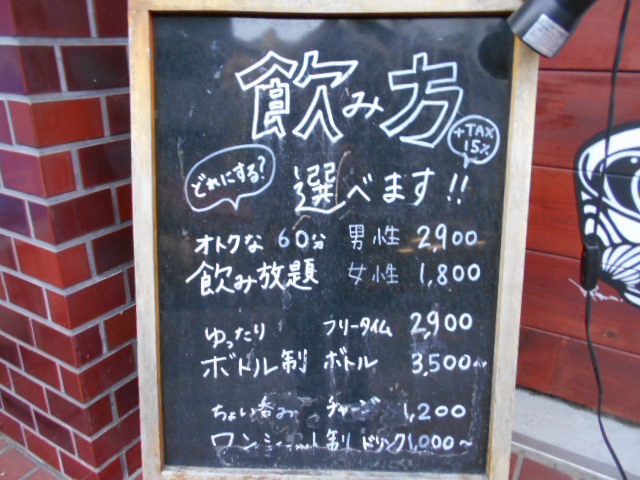 飲み方
+TAX
15%
どれにする?
選べます!!
オトクな 60分 男性 2,900
飲み放題 女性 1,800
ゆったり フリータイム 2,900
ボトル制 ボトル 3,500~
ちょい呑み チャージ 1,200
制 ドリンク 1,000~